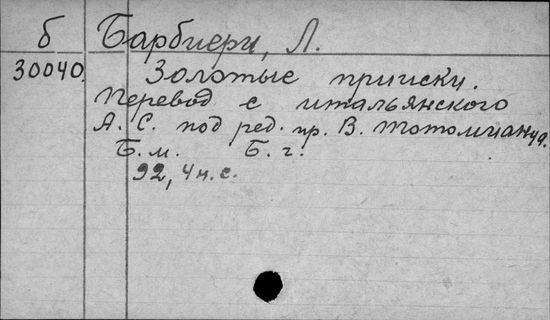 б Барбиери, Л.
30040. Золотые прииски.
Перевод с итальянского
А. С. под ред. пр. В. Тотомианца.
Б. м. Б. г.
92, 4 н. с.